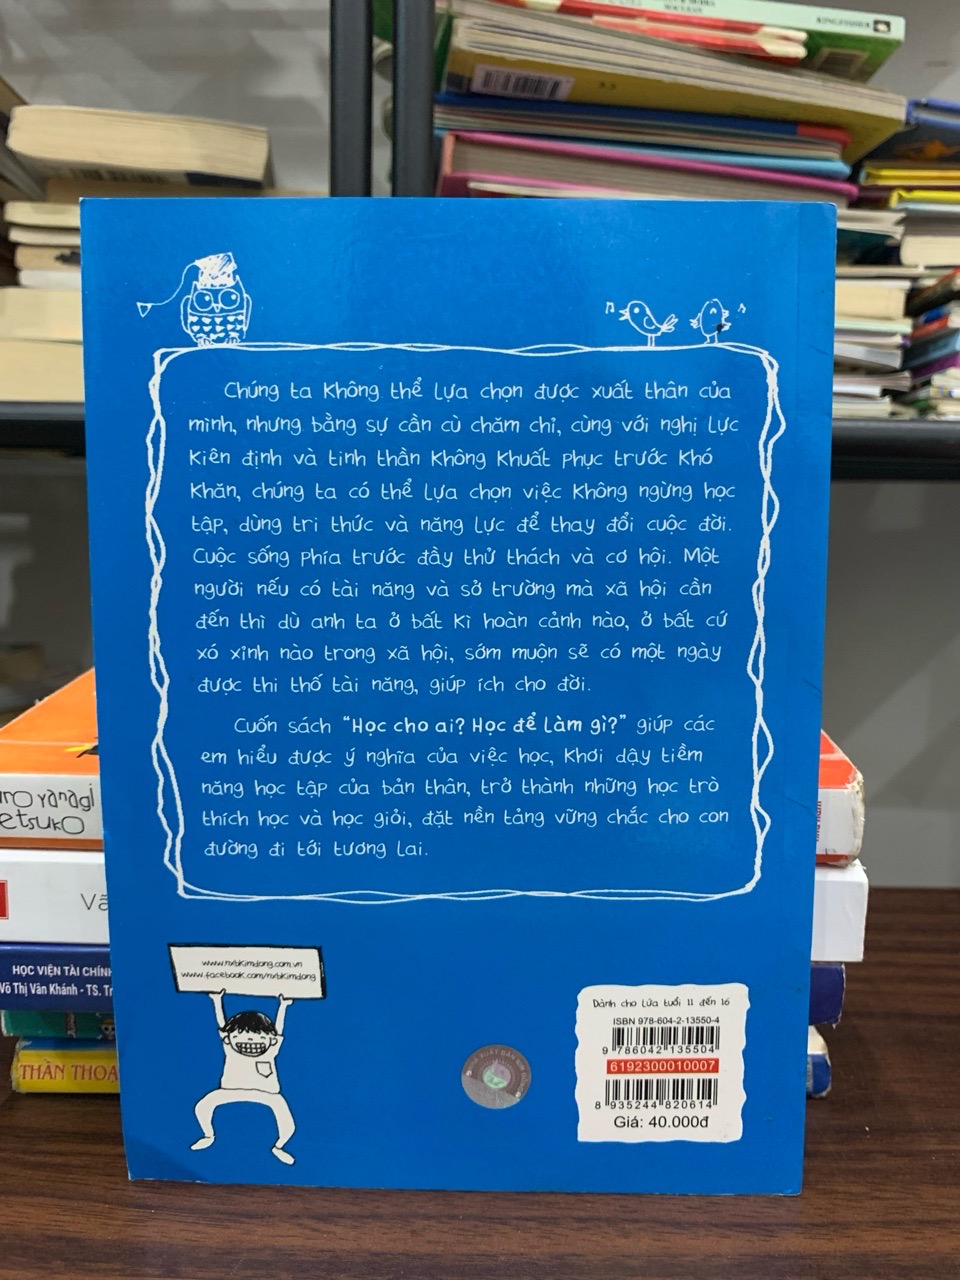 KINGFISHER
Chúng ta không thể lựa chọn được xuất thân của
mình, nhưng bằng sự cần cù chăm chỉ, cùng với nghị lực
kiên định và tinh thần không khuất phục trước khó
khăn, chúng ta có thể lựa chọn việc không ngừng học
tập, dùng tri thức và năng lực để thay đổi cuộc đời.
Cuộc sống phía trước đầy thử thách và cơ hội. Một
người nếu có tài năng và sở trường mà xã hội cần
đến thì dù anh ta ở bất kì hoàn cảnh nào, ở bất cứ
xó xỉnh nào trong xã hội, sớm muộn sẽ có một ngày
được thi thố tài năng, giúp ích cho đời.
Cuốn sách "Học cho ai? Học để làm gì?" giúp các
em hiểu được ý nghĩa của việc học, khơi dậy tiềm
năng học tập của bản thân, trở thành những học trò
thích học và học giỏi, đặt nền tảng vững chắc cho con
đường đi tới tương lai.
yanagi
etsuko
HỌC VIỆN TÀI CHÍNH
Võ Thị Vân Khánh - TS.
THẦN THOẠ
www.nxbkimdong.com.vn
www.facebook.com/nxbkimdong
Dành cho lứa tuổi 11 đến 16
ISBN 978-604-2-13550-4
9 786042 135504
6192300010007
8 935244 820614
Giá: 40.000đ